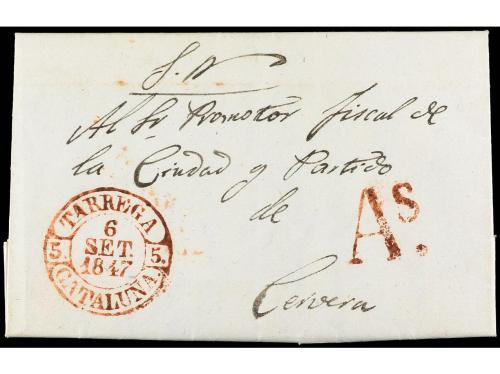 S. N
Al Sr Promotor fiscal de
la Ciudad y Partido
de
Cervera
As.
TARREGA
6
SET.
1847
5. 5.
CATALUÑA